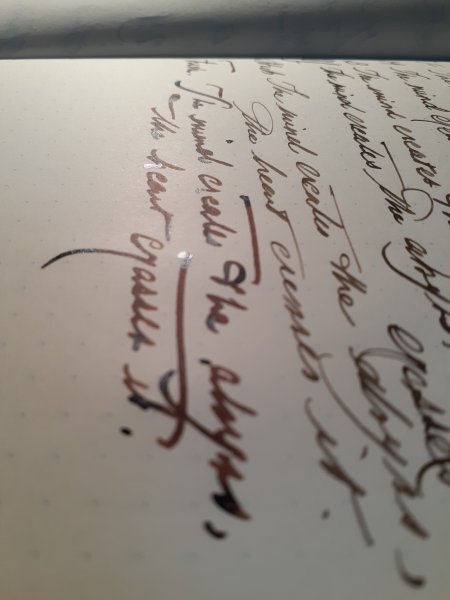 The mind
The mind creates
The mind creates the abyss,
crosses
The mind creates the abyss,
The heart crosses it.
The mind creates the abyss,
the heart crosses it.